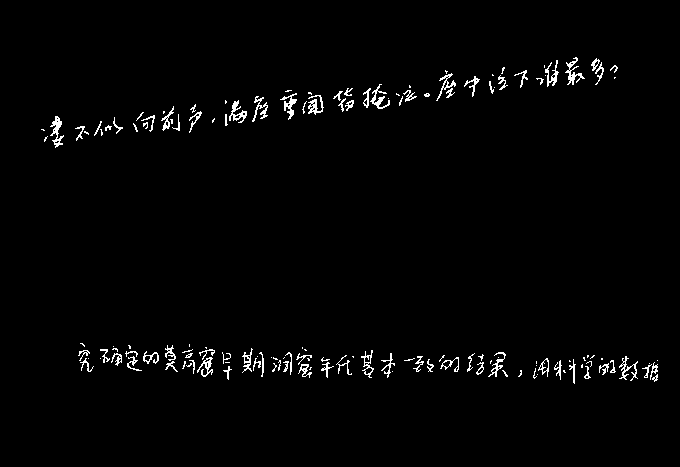 凄不似向前声，满座重闻皆掩泣。座中泣下谁最多？
究确定的莫高窟早期洞窟年代基本一致的结果，用科学的数据